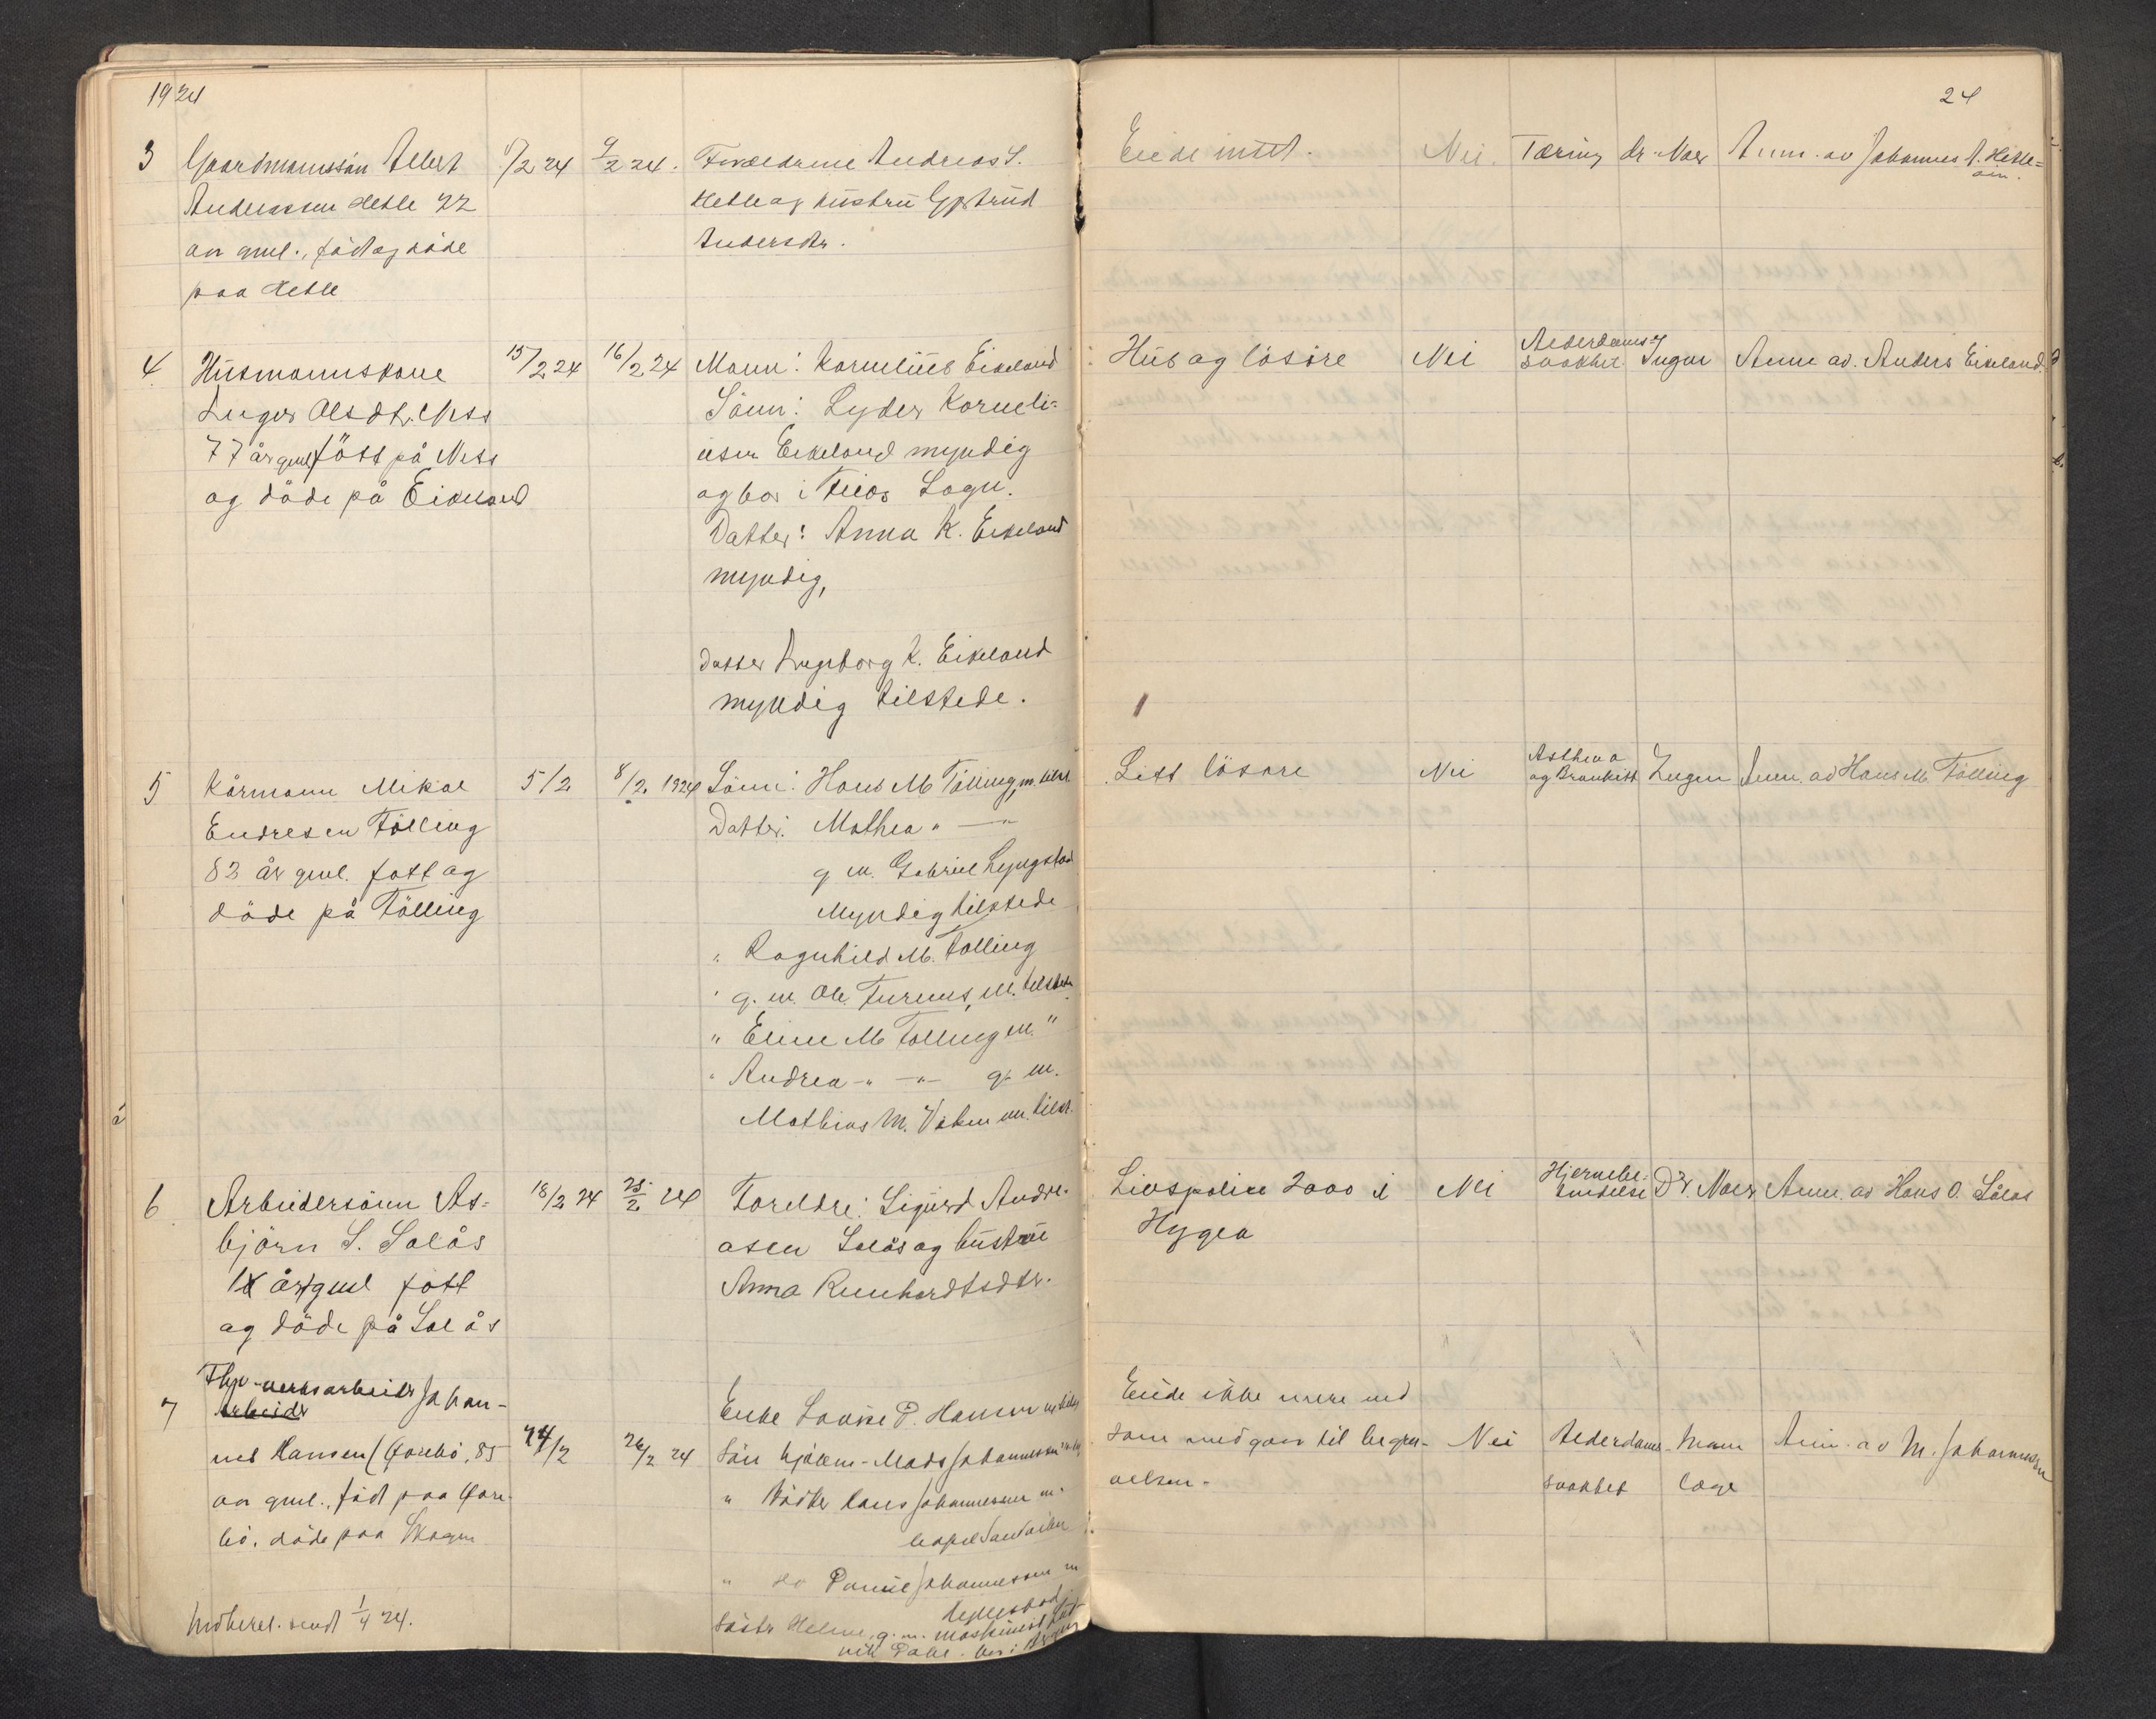 1924
24
3 Gaardmannssön Albert
Anderssen Hetle 22
aar gml., född og döde
paa Hetle
/2 24
9/2 24.
Foreldrene Andreas S.
Hetle og hustru Gjertrud
Andersdtr.
Eiede intet.
Nei.
Tæring
dr. Naer
Anm. av Johannes A. Hetle-
4 Husmannskone
Inger Olsdtr. Ness
77 år gml född på Ness
og döde på Eikeland
15/2 24
16/2 24
Mann: Kornelius Eikeland
Sönn: Lyder Korneli-
usen Eikeland myndig
og bor i Feios Sogn.
Datter: Anna K. Eikeland
myndig,
datter Ingeborg K. Eikeland
myndig tilstede.
Hus og lösöre
Nei
Alderdoms-
svakhet
Ingen
Anm. av. Anders Eikeland.
5 Kårmann Mikal
Endresen Fölling
83 år gml. fött og
döde på Fölling
5/2
8/2. 1924
Sönn: Hans M Fölling, m. tilst.
Datter: Mathea " — "
g m. Gabriel Lyngstad
Myndig tilstede
" Ragnhild M. Fölling
g. m. Ole Furenes, M. tilstede
" Eline M Fölling m. "
" Andrea - " - " - g. m.
Mathias M. m. tilst.
Litt lösöre
Nei
Asthma
og Bronkitt
Ingen
Anm. av Hans M. Fölling
6 Arbeidersönn As-
björn S. Solås
år gml fött
og döde på Solås
18/2 24
25/2 24
Foreldre: Sigurd Andre-
asen Solås og hustru
Anna Reinhardtsdtr.
Livspolice 2000 i
Hygea
Nei
Hjernebe-
tendelse
Dr. Naer
Anm. av Hans O. Solås
7 arbeider Johan-
arbeider
nes Hansen Gjorebö, 85
aar gml., född paa Gjore-
bö, döde paa Skogen
24/2
26/2 24
Enke Lovise P. Hansen
Sön hjemme - Mads Johannessen
" Lars Johannessen m.
" do Daniel Johannessen m
Helene, g. m. maskinist
Dahl. bor i Bergen
Eiede ikke mere end
som medgaar til begra-
velsen.
Nei
Alderdoms-
svakhet
Ingen
læge
Anm. av M. Johannessen
Indberet. sendt 1/4 24.